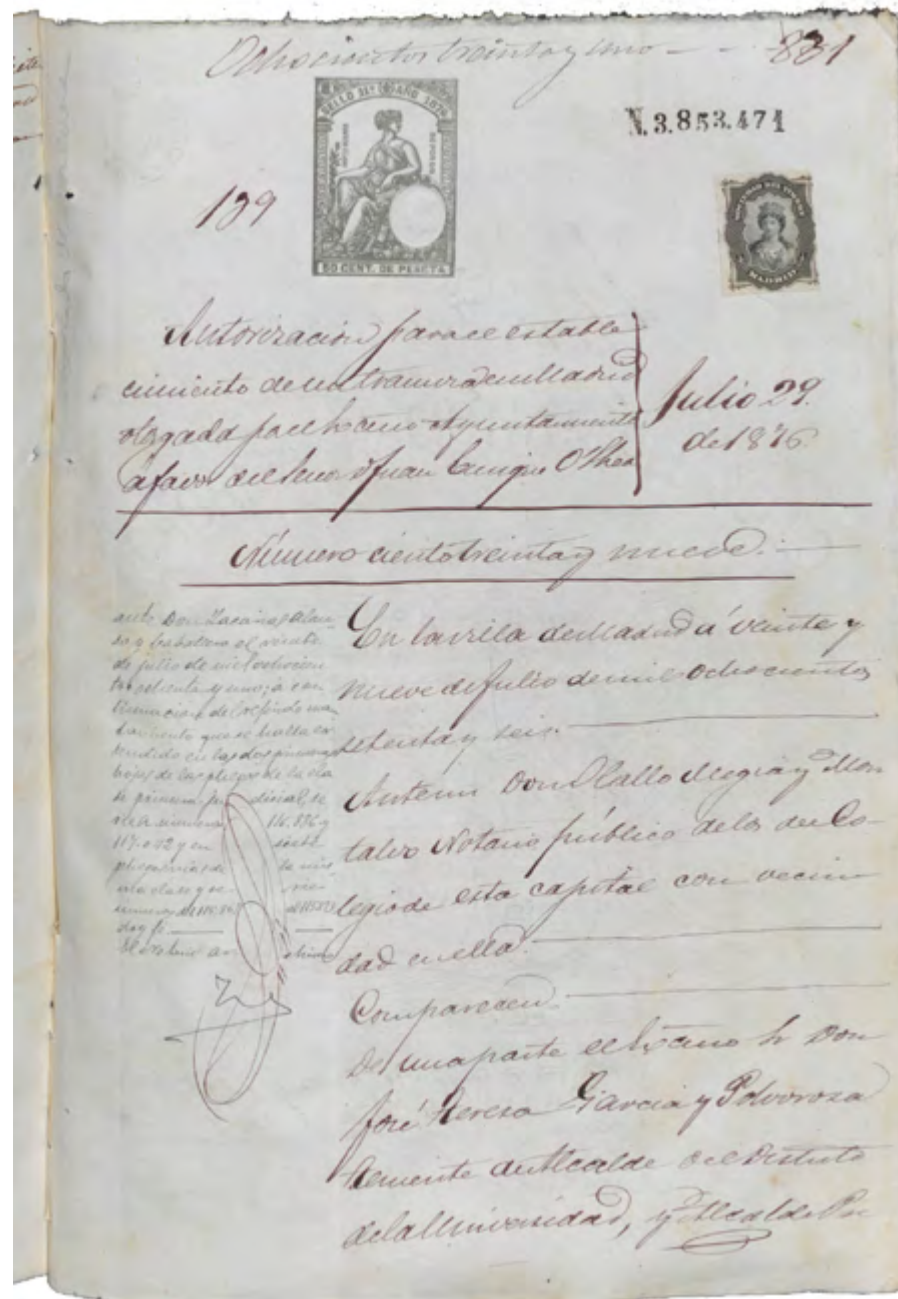 Ochocientos treinta y uno — - 831
SELLO 11º AÑO 1876
50 CENT. DE PESETA
N. 3.853.471
MADRID
139
Autorizacion para el estable
cimiento de un tranvia en Madrid
otogada por el Excmo Ayuntamiento
á favor del Señor Dn Juan Enrique O'Shea
Julio 29.
de 1876.
Número ciento treinta y nueve. —
ante Don Zacarias Alon
so y Caballero el veinte
de julio de mil ochocien
tos setenta y uno; á con
tinuacion del
que se halla es
tendido en las dos primeras
hojas de los pliegos de la cla
se primera judicial, se
rie numeros 116.836 y
117.092 y en siete
pliegos mas de la mis
ma clase y se rie
numeros del
doy fé. —
En la villa de Madrid á veinte y
nueve de Julio de mil ochocientos
setenta y seis. —
Ante mi Don Olallo Megia y Mon
talvo Notario público de los del Co-
legio de esta capital con vecin
dad en ella. —
Comparecen —
De una parte el Excmo Sr Don
José Teresa Garcia y Polvorosa
Teniente de Alcalde del Distrito
de la Universidad, y Alcalde Pre